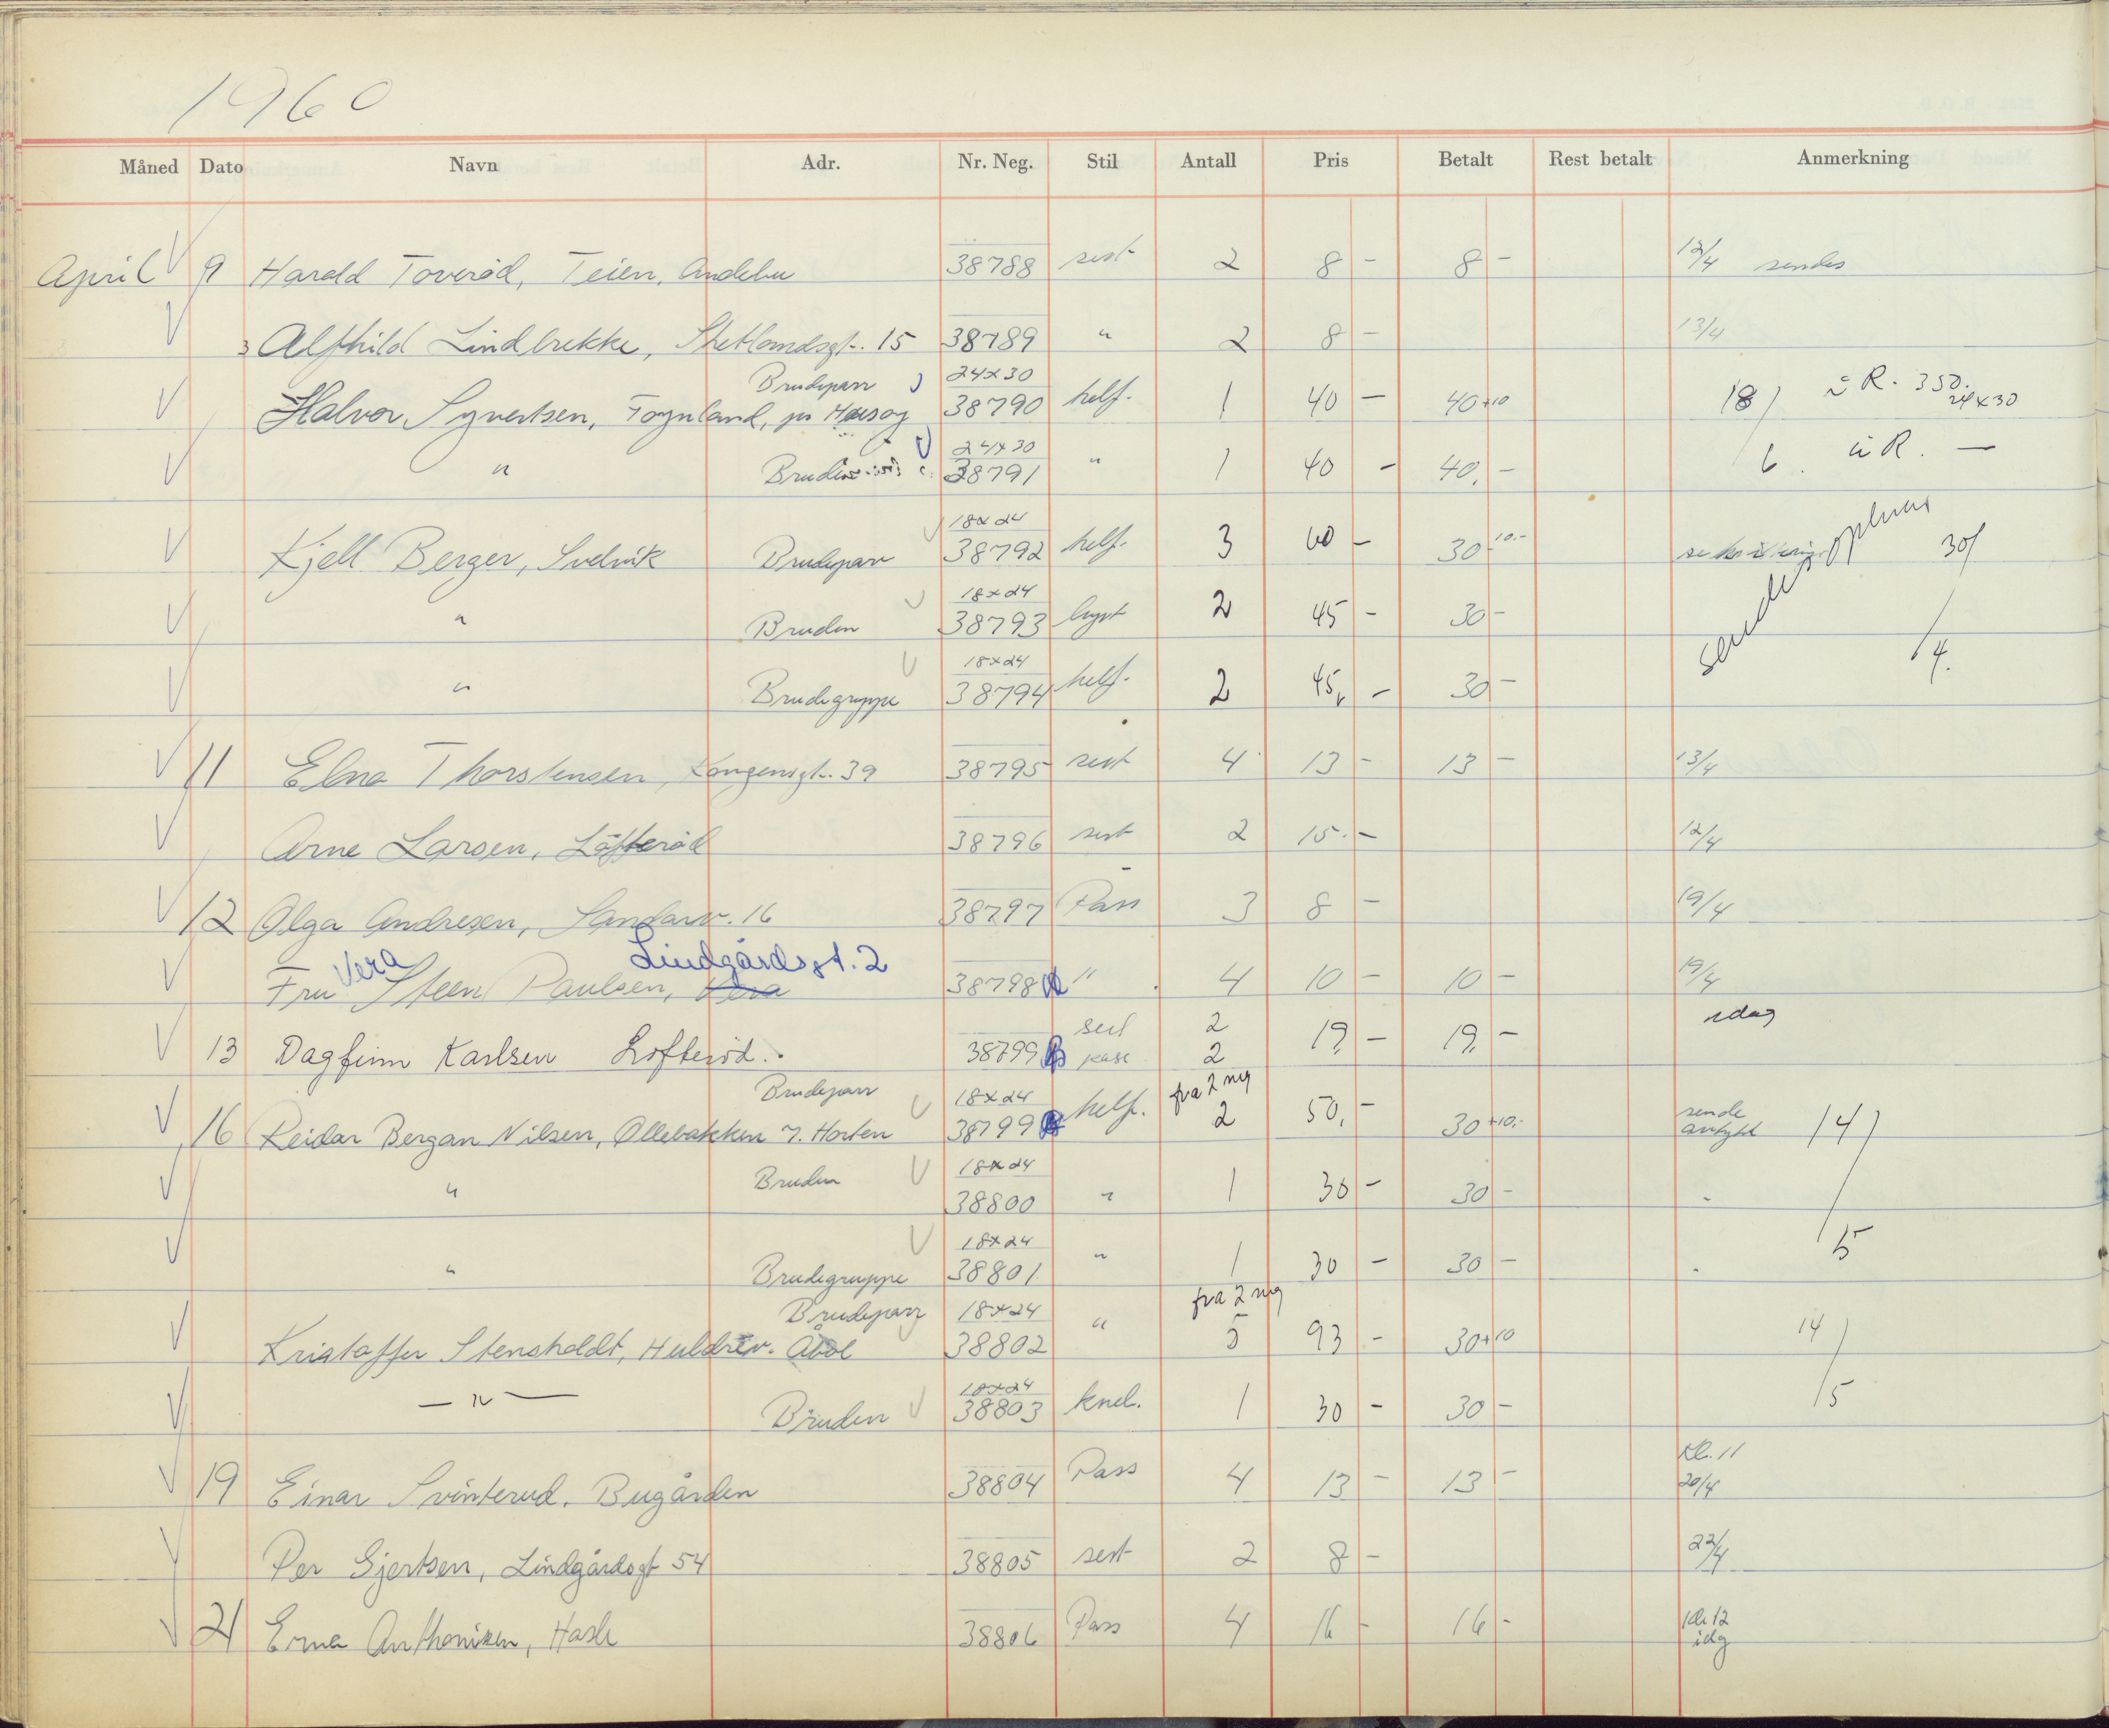 1960
Måned Dato Navn Adr. Nr. Neg. Stil Antall Pris Betalt Rest betalt Anmerkning
April 9 Harald Toverød, Teien, Andebu 38788 sest 2 8 - 8 - 12/4 sendes
Alfhild Lindbrekke, Shetlandsgt. 15 38789 " 2 8 - 13/4
Brudeparr 24x30
Halvor Syvertsen, Føynland, pr Husøy 38790 helf. 1 40 - 40+10 18/ i R. 350. 24x30
24x30
" Bruden 38791 " 1 40 - 40,- 6. i R. —
18x24
Kjell Berger, Svelvik Brudeparr 38792 helf. 3 60 - 30 10.- sendes 30/
18x24
" Bruden 38793 bryst 2 45 - 30 - /4.
18x24
" Brudegruppe 38794 helf. 2 45, - 30 -
11 Elna Thorstensen, Kongensgt. 39 38795 sest 4 13 - 13 - 13/4
Arne Larsen, Løfterød 38796 sest 2 15.- 12/4
12 Olga Andresen, Sandarv. 16 38797 Pass 3 8 - 19/4
Vera Lindgårdsgt. 2
Fru Steen Paulsen, Vera 38798 " 4 10 - 10 - 19/4
sest 2 idag
13 Dagfinn Karlsen Løfterød. 38799 B pass 2 19,- 19,-
Brudeparr 18x24 fra 2 neg
16 Reidar Bergan Nilsen, Ollebakken 7. Horten 38799 helf. 2 50,- 30+10,- sende 14/
Bruden 18x24
" 38800 " 1 30 - 30 - "
18x24
" Brudegruppe 38801 " 1 30 - 30 - " 5
Brudeparr 18x24 fra 2 neg
Kristoffer Stensholdt, Huldrev. 38802 " 5 93 - 30+10 14/
18x24
— " — Bruden 38803 knel. 1 30 - 30 - /5
Kl. 11
19 Einar Svinterud. Bugården 38804 Pass 4 13 - 13 - 20/4
Per Gjertsen, Lindgårdsgt 54 38805 sest 2 8 - 22/4
21 Erna Anthonisen, Hasle 38806 Pass 4 16 - 16 - kl. 12
idg